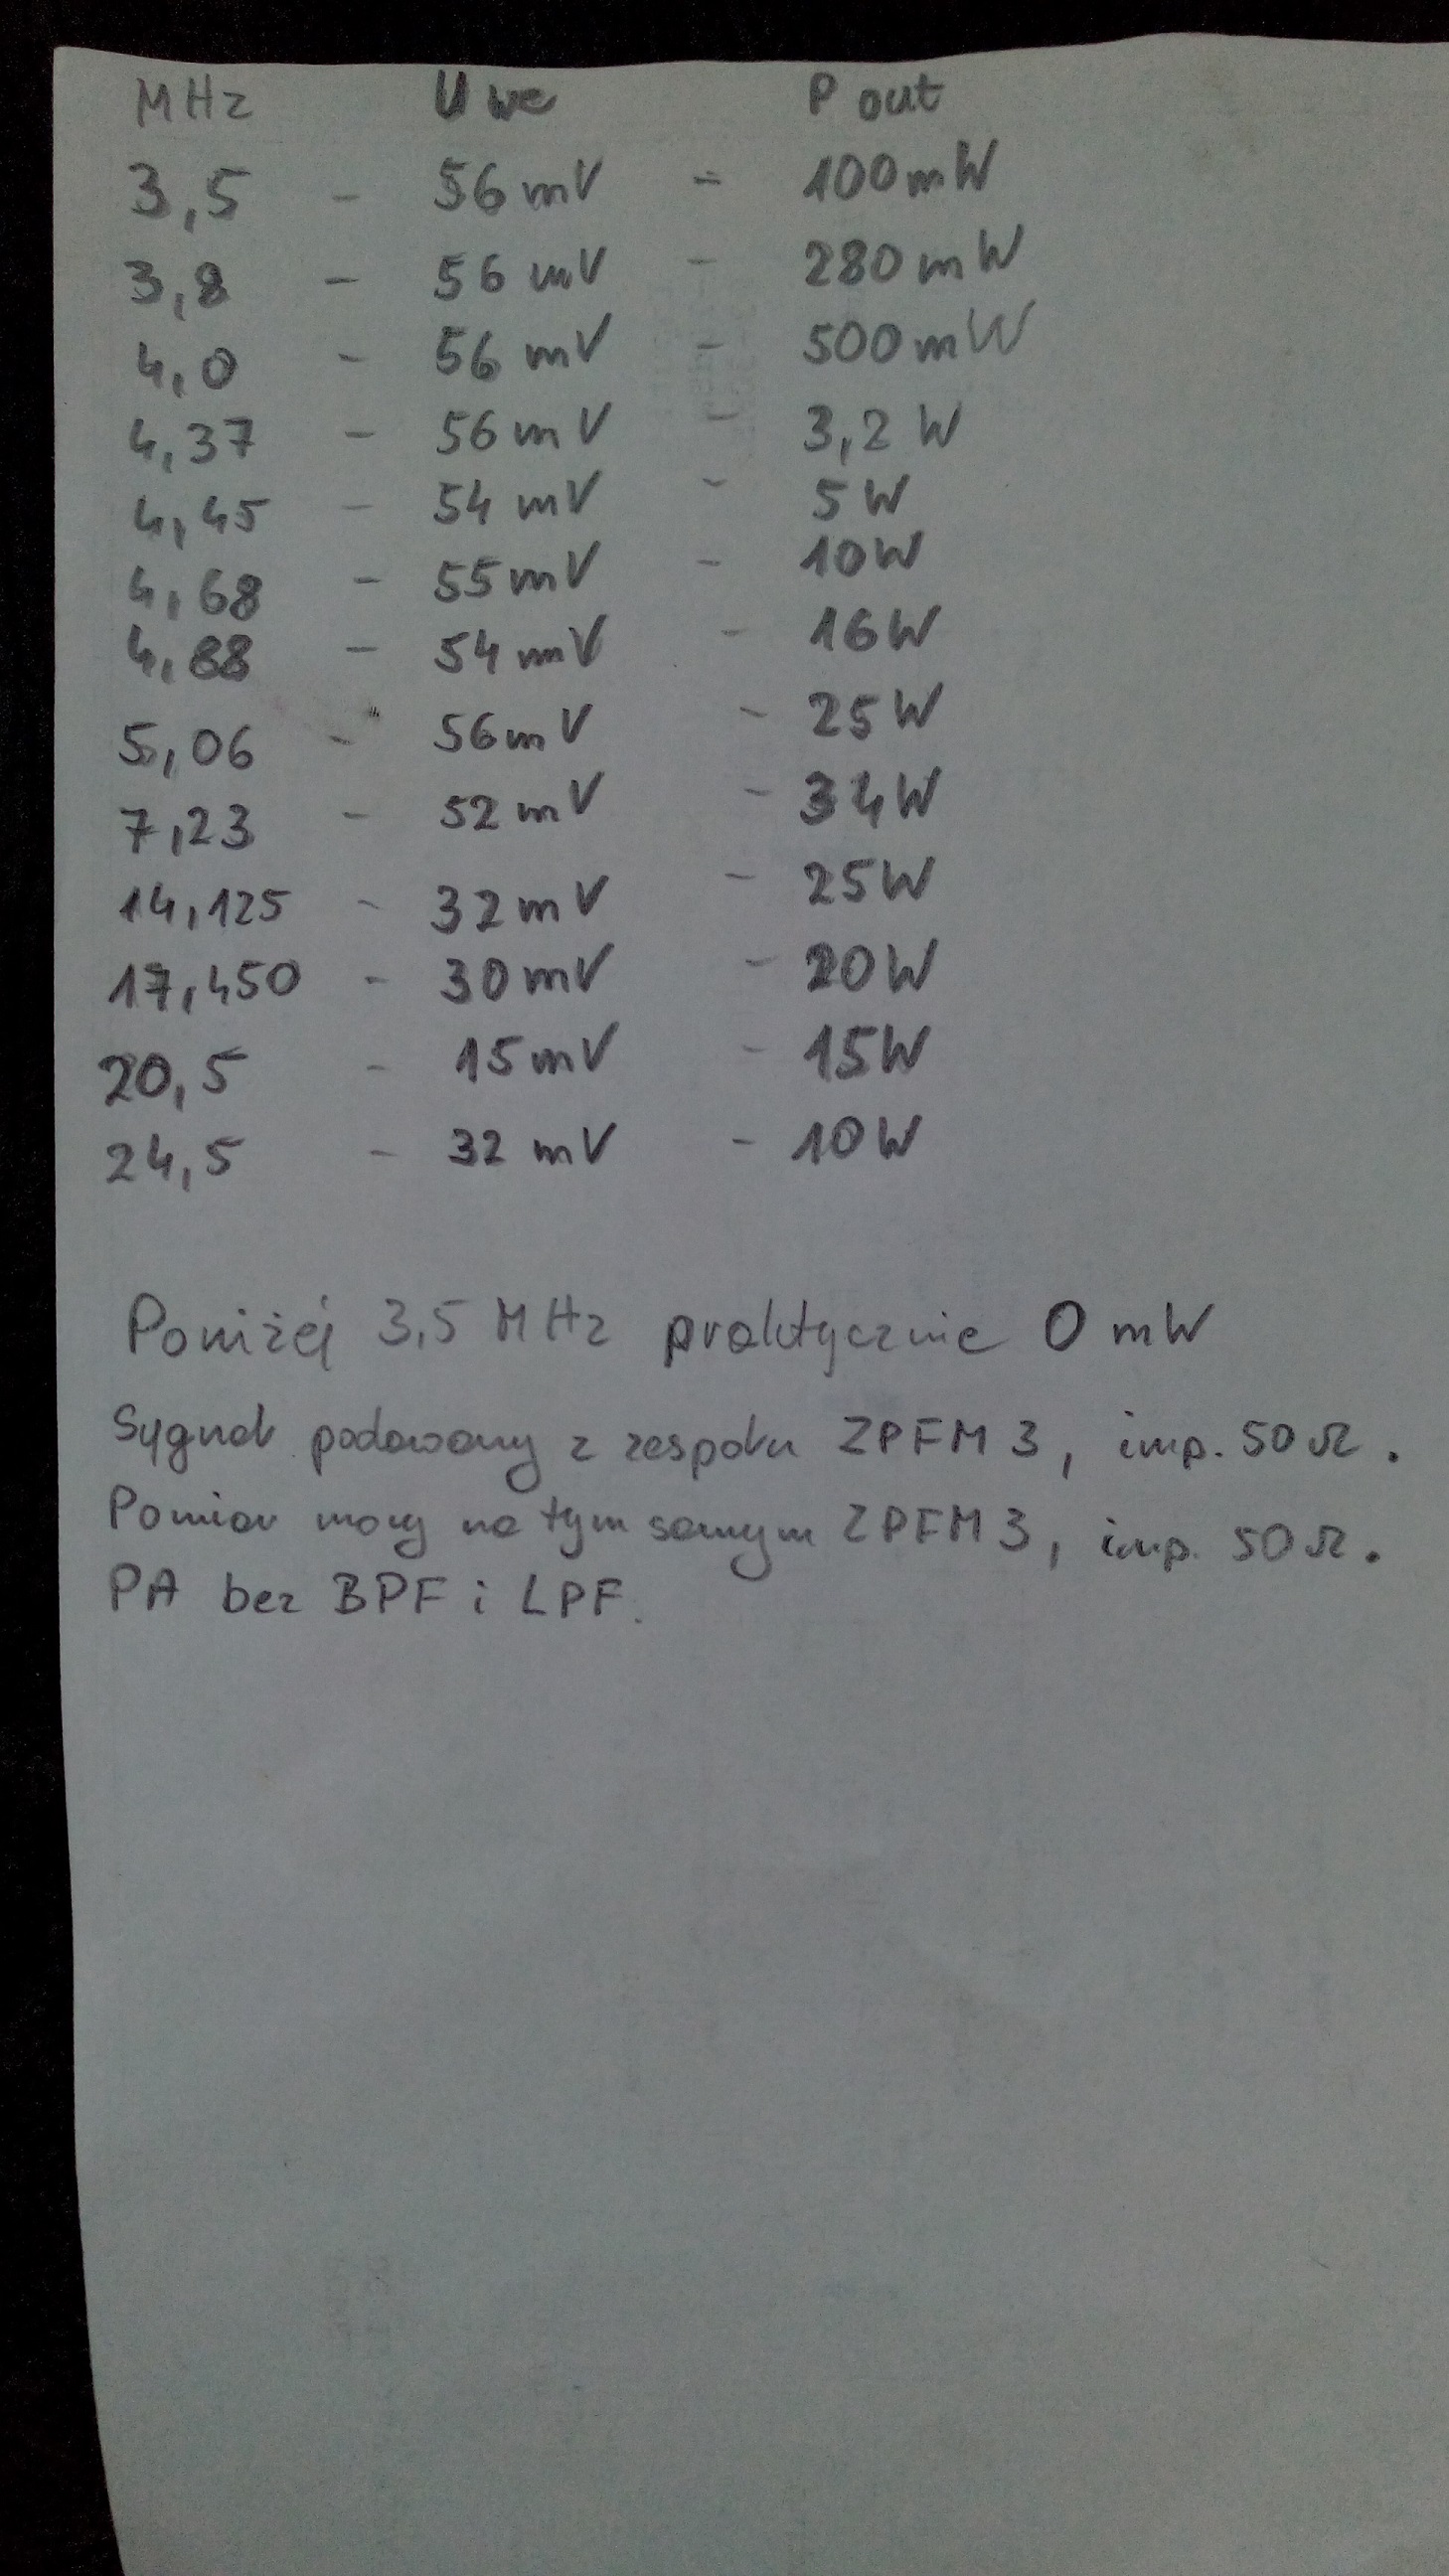 MHz U we P out
3,5 - 56 mV - 100 mW
3,8 - 56 mV - 280 mW
4,0 - 56 mV - 500 mW
4,37 - 56 mV - 3,2 W
4,45 - 54 mV - 5 W
4,68 - 55 mV - 10 W
4,88 - 54 mV - 16 W
5,06 - 56 mV - 25 W
7,23 - 52 mV - 34 W
14,125 - 32 mV - 25 W
17,450 - 30 mV - 20 W
20,5 - 15 mV - 15 W
24,5 - 32 mV - 10 W
Poniżej 3,5 MHz praktycznie 0 mW
Sygnał podawany z zespołu ZPFM 3, imp. 50 Ω.
Pomiar mocy na tym samym ZPFM 3, imp. 50 Ω.
PA bez BPF i LPF.